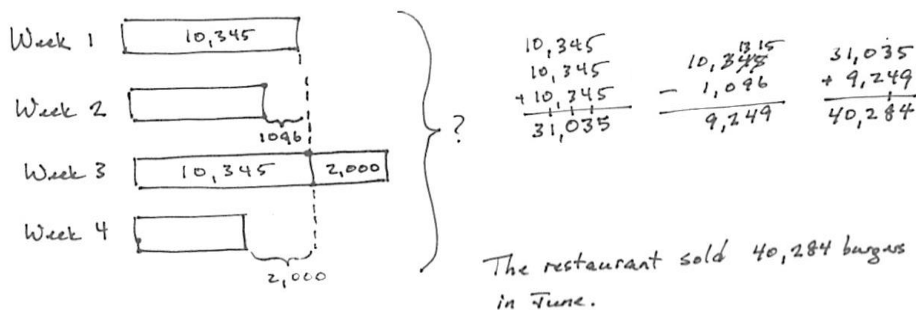 Week 1 10,345
Week 2
1096
Week 3 10,345 2,000
Week 4
2,000
?
10,345
10,345
+ 10,345
31,035
13 15
10,345
- 1,096
9,249
31,035
+ 9,249
40,284
The restaurant sold 40,284 burgers
in June.